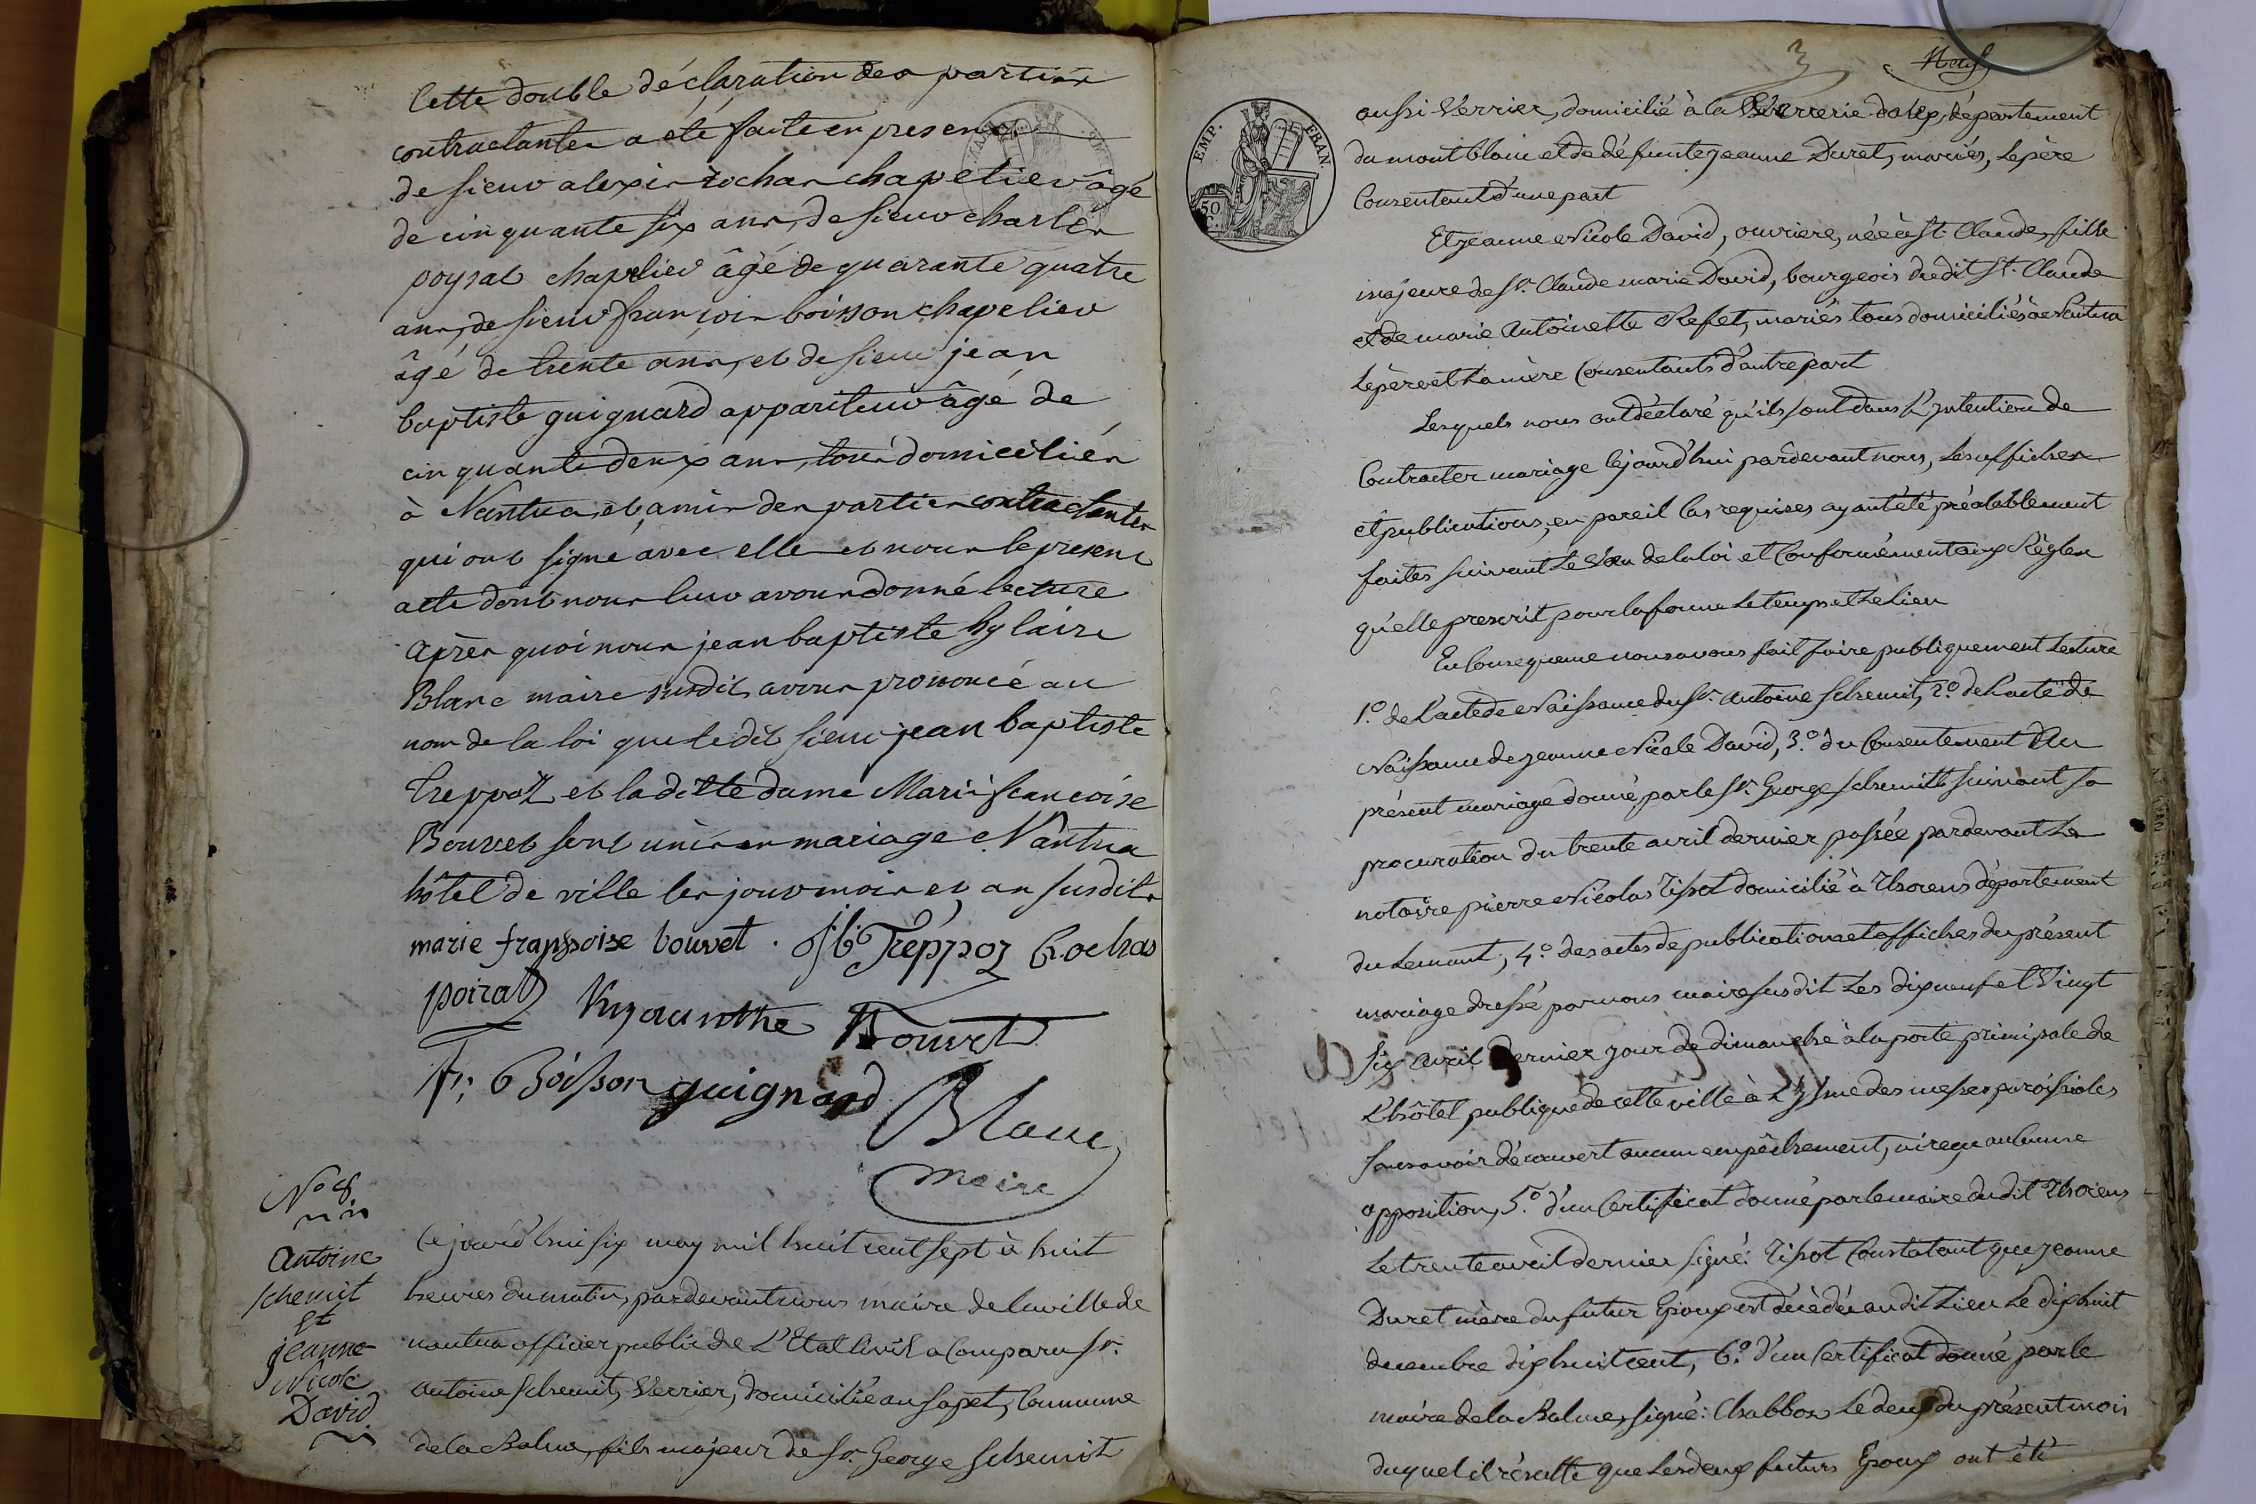 Cette double déclaration des parties
contractantes a eté faite en presence
de sieur alexis rochas chapelier âgé
de cinquante six ans, de sieur charles
poyrat chapelier âgé de quarante quatre
ans, de sieur françois boisson chapelier
âgé de trente ans, et de sieur jean
baptiste guignard appariteur âgé de
cinquante deux ans, tous domiciliés
à Nantua et amis des parties contractantes
qui ont signé avec elle et nous le present
acte dont nous leur avons donné lecture
après quoi nous jean baptiste hylaire
Blanc maire susdit avons prononcé au
nom de la loi que le dit sieur jean baptiste
Treppoz et la ditte dame Marie françoise
Bouvet sont unis en mariage Nântua
hôtel de ville les jour mois et an susdits
marie franssoise bouvet . J b Treppoz Rochas
poirat hyacinthe Bouvet
fs Boisson guignard
Blanc
maire
N° 8
Antoine
schemit
et
jeanne
Nicole
David
Cejourd'hui six may mil huit cent sept à huit
heures du matin, pardevant nous maire de la ville de
nantua officier public de L'Etat Civil a Comparu Sr.
antoine Schemit, Verrier, domicilié au sapet, Commune
de la Balme, fils majeur de Sr. George Schemit
3 Neuf
EMP. FRAN.
50
C.
aussi Verrier, domicilié à la Verrerie dalex, département
du mont blanc et de défunte jeanne Duret, mariés, le père
Consentant d'une part
Et jeanne Nicole David, ouvriere, née à St. Claude, fille
majeure de Sr. Claude marie David, bourgeois dudit St. Claude
et de marie Antoinette Refet, mariés tous domiciliés à Nantua
le père et la mère Consentants d'autre part
Lesquels nous ont déclaré qu'ils sont dans L'Intention de
Contracter mariage Cejourd'hui pardevant nous, les affiches
et publications, en pareil Cas requises ayant été préalablement
faites suivant le Vœu de la loi et Conformément aux Règles
qu'elle prescrit pour la forme Le temps et Le Lieu
En Consequence nous avons fait faire publiquement Lecture
1.° de L'acte de Naissance du Sr. Antoine Schemit, 2.° de L'acte de
Naissance de jeanne Nicole David, 3.° du Consentement Au
présent mariage donné par le Sr. George Schemitt suivant sa
procuration du trente avril dernier passée pardevant Le
notaire pierre Nicolas Tissot domicilié à Thorens département
du Lemant, 4.° des actes de publications et affiches du présent
mariage dressé par nous maire susdit Les dix neuf et Vingt
six avril dernier jour de dimanche à la porte principale de
L'hôtel publique de cette ville à L'Issue des messes paroissiales
sans avoir découvert aucun empêchement, ni reçu aucune
opposition, 5.° d'un Certificat donné par le maire dudit Thorens
Le trente avril dernier signé: Tissot Constatant que jeanne
Duret mère du futur Epoux est décèdée audit Lieu Le dix huit
decembre dix huit cent, 6.° d'un Certificat donné par le
maire de la Balme, signé: Chabbos Le deux du présent mois
duquel il résulte que Les deux futurs Epoux ont été